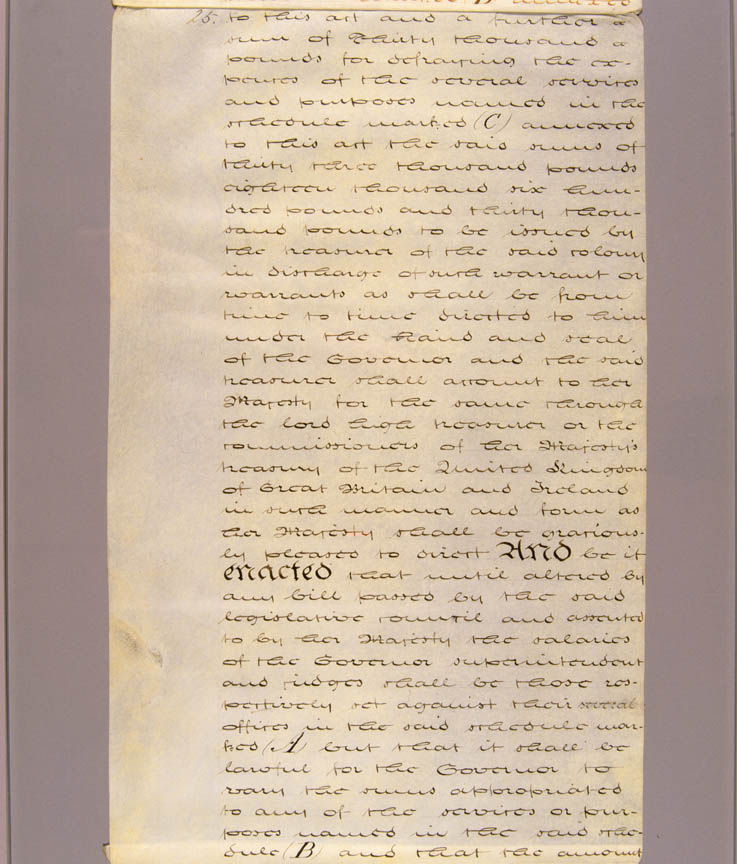 25. to this act and a further a
sum of Thirty thousand a
pounds for defraying the ex-
pences of the several services
and purposes named in the
schedule marked (C) annexed
to this act the said sums of
thirty three thousand pounds
eighteen thousand six hun-
dred pounds and thirty thou-
sand pounds to be issued by
the treasurer of the said colony
in discharge of such warrant or
warrants as shall be from
time to time directed to him
under the hand and seal
of the Governor and the said
treasurer shall account to her
Majesty for the same through
the lord high treasurer or the
commissioners of her Majesty's
treasury of the United Kingdom
of Great Britain and Ireland
in such manner and form as
her Majesty shall be gracious-
ly pleased to direct And be it
enacted that until altered by
any bill passed by the said
legislative council and assented
to by her Majesty the salaries
of the Governor superintendent
and judges shall be those res-
pectively set against their several
offices in the said schedule mar-
ked (A) but that it shall be
lawful for the Governor to
vary the sums appropriated
to any of the services or pur-
poses named in the said sche-
dule (B) and that the amount